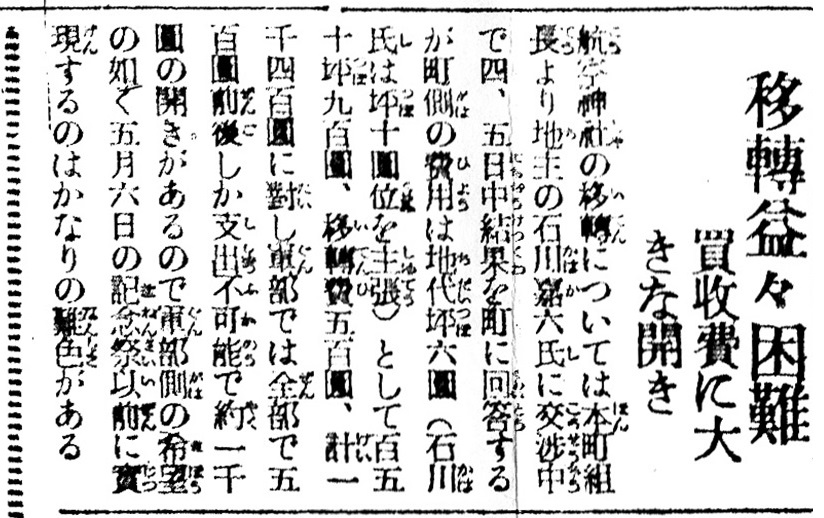 移轉益々困難
買收費に大
きな開き
航空神社の移轉については本町組
長より地主の石川嘉六氏に交渉中
で四、五日中結果を町に回答する
が町側の費用は地代坪六圓(石川
氏は坪十圓位を主張)として百五
十坪九百圓、移轉費五百圓、計一
千四百圓に對し軍部では全部で五
百圓前後しか支出不可能で約一千
圓の開きがあるので軍部側の希望
の如く五月六日の記念祭以前に實
現するのはかなりの難色がある